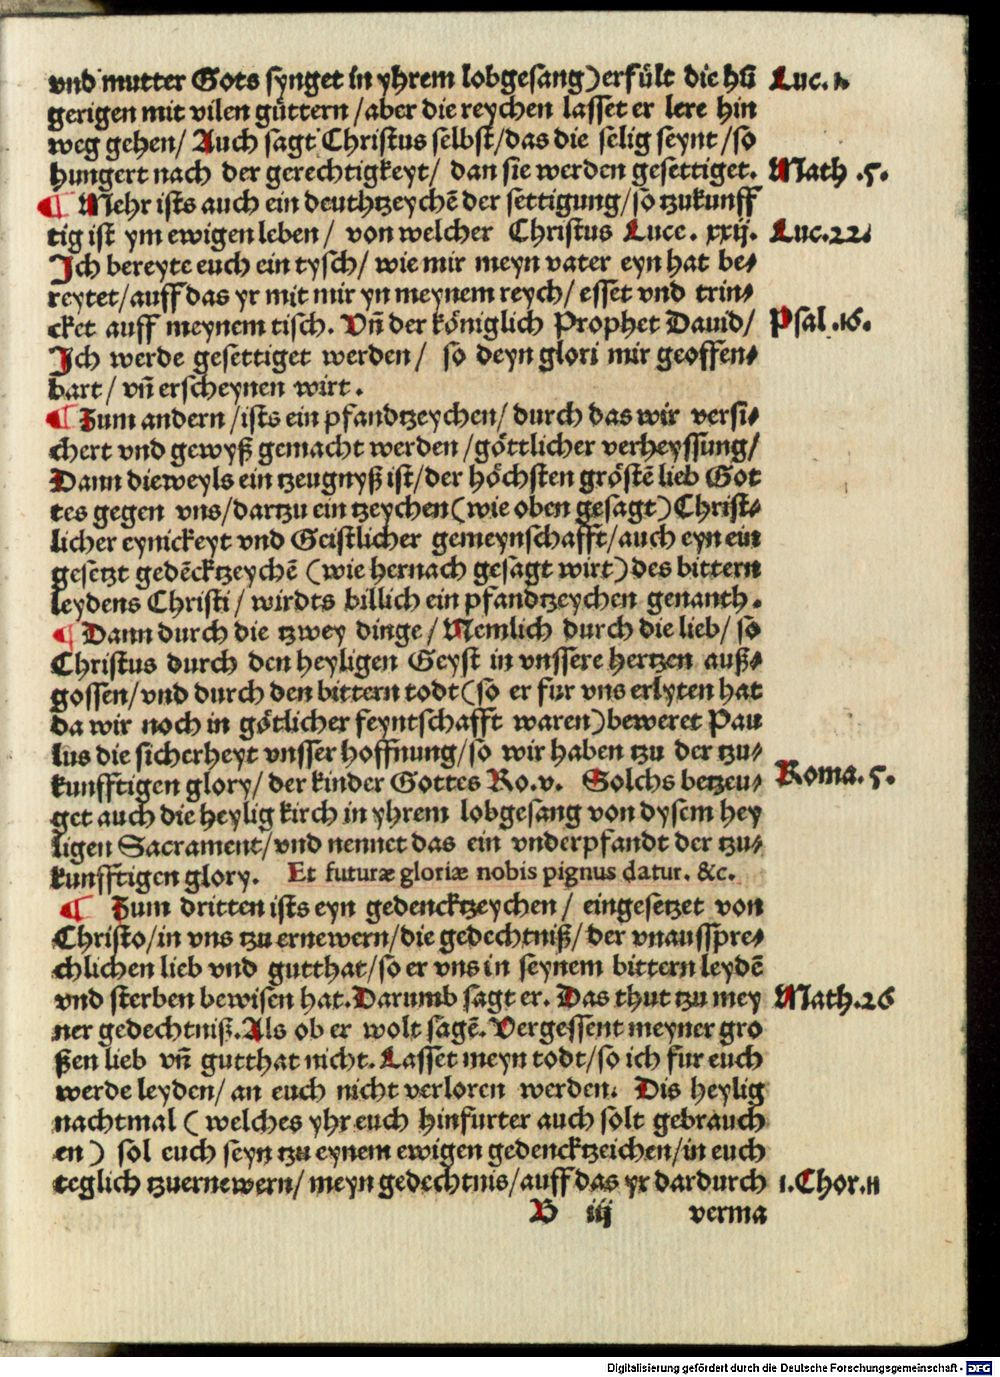 vnd mutter Gots synget in yhrem lobgesang) erfült die hũ Luc. 1.
gerigen mit vilen güttern / aber die reychen lasset er lere hin
weg gehen / Auch sagt Christus selbst / das die selig seynt / so
hungert nach der gerechtigkeyt / dan sie werden gesettiget. Math .5.
¶ Mehr ists auch ein deuthtzeychẽ der settigung / so tzukunff
tig ist ym ewigen leben / von welcher Christus Luce. xxij. Luc.22.
Ich bereyte euch ein tysch / wie mir meyn vater eyn hat be⸗
reytet / auff das yr mit mir yn meynem reych / esset vnd trin⸗
cket auff meynem tisch. Vñ der königlich Prophet Dauid / Psal .16.
Ich werde gesettiget werden / so deyn glori mir geoffen⸗
bart / vñ erscheynen wirt.
¶ Zum andern / ists ein pfandtzeychen / durch das wir versi⸗
chert vnd gewyß gemacht werden / göttlicher verheyssung /
Dann dieweyls ein tzeugnyß ist / der höchsten gröstẽ lieb Got
tes gegen vns / dartzu ein tzeychen (wie oben gesagt) Christ⸗
licher eynickeyt vnd Geistlicher gemeynschafft / auch eyn ein
gesetzt gedẽcktzeychẽ (wie hernach gesagt wirt) des bittern
leydens Christi / wirdts billich ein pfandtzeychen genanth.
¶ Dann durch die tzwey dinge / Nemlich durch die lieb / so
Christus durch den heyligen Geyst in vnssere hertzen auß⸗
gossen / vnd durch den bittern todt (so er fur vns erlyten hat
da wir noch in götlicher feyntschafft waren) beweret Pau
lus die sicherheyt vnsser hoffnung / so wir haben tzu der tzu⸗
kunfftigen glory / der kinder Gottes Ro.v. Solchs betzeu⸗ Roma. 5.
get auch die heylig kirch in yhrem lobgesang von dysem hey
ligen Sacrament / vnd nennet das ein vnderpfandt der tzu⸗
kunfftigen glory. Et futuræ gloriæ nobis pignus datur. &c.
¶ Zum dritten ists eyn gedencktzeychen / eingesetzet von
Christo / in vns tzu ernewern / die gedechtniß / der vnausspre⸗
chlichen lieb vnd gutthat / so er vns in seynem bittern leydẽ
vnd sterben bewisen hat. Darumb sagt er. Das thut tzu mey Math.26
ner gedechtniß. Als ob er wolt sagẽ. Vergessent meyner gro
ßen lieb vñ gutthat nicht. Lasset meyn todt / so ich fur euch
werde leyden / an euch nicht verloren werden. Dis heylig
nachtmal (welches yhr euch hinfurter auch solt gebrauch
en) sol euch seyn tzu eynem ewigen gedencktzeichen / in euch
teglich tzuernewern / meyn gedechtnis / auff das yr dardurch 1.Chor.11
B iij verma
Digitalisierung gefördert durch die Deutsche Forschungsgemeinschaft - DFG